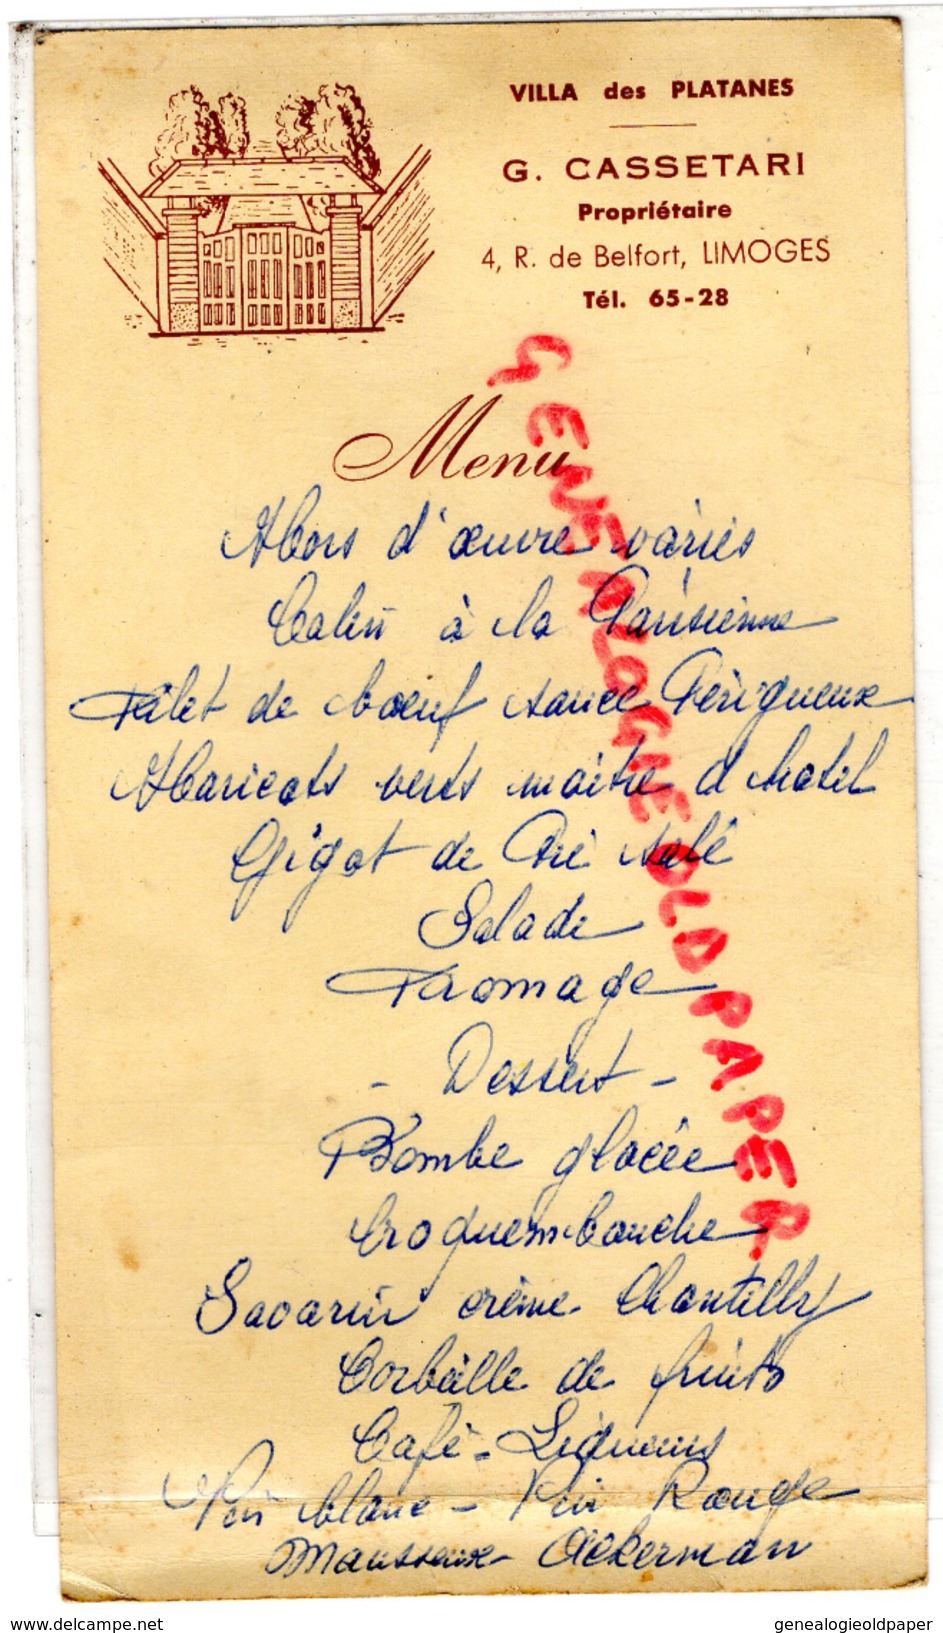 VILLA des PLATANES
G. CASSETARI
Propriétaire
4, R. de Belfort, LIMOGES
Tél. 65-28
GENEALOGIE OLD PAPER
Menu
Hors d'œuvre variés
Colin à la Parisienne
Filet de bœuf sauce Périgueux
Haricots verts maître d hotel
Gigot de Pré salé
Salade
Fromage
- Dessert -
Bombe glacée
Croquembouche
Savarin crème Chantilly
Corbeille de fruits
Café - Liqueurs
Vin blanc - Vin Rouge
Mousseux - Ackerman
delcampe.net
genealogieoldpaper